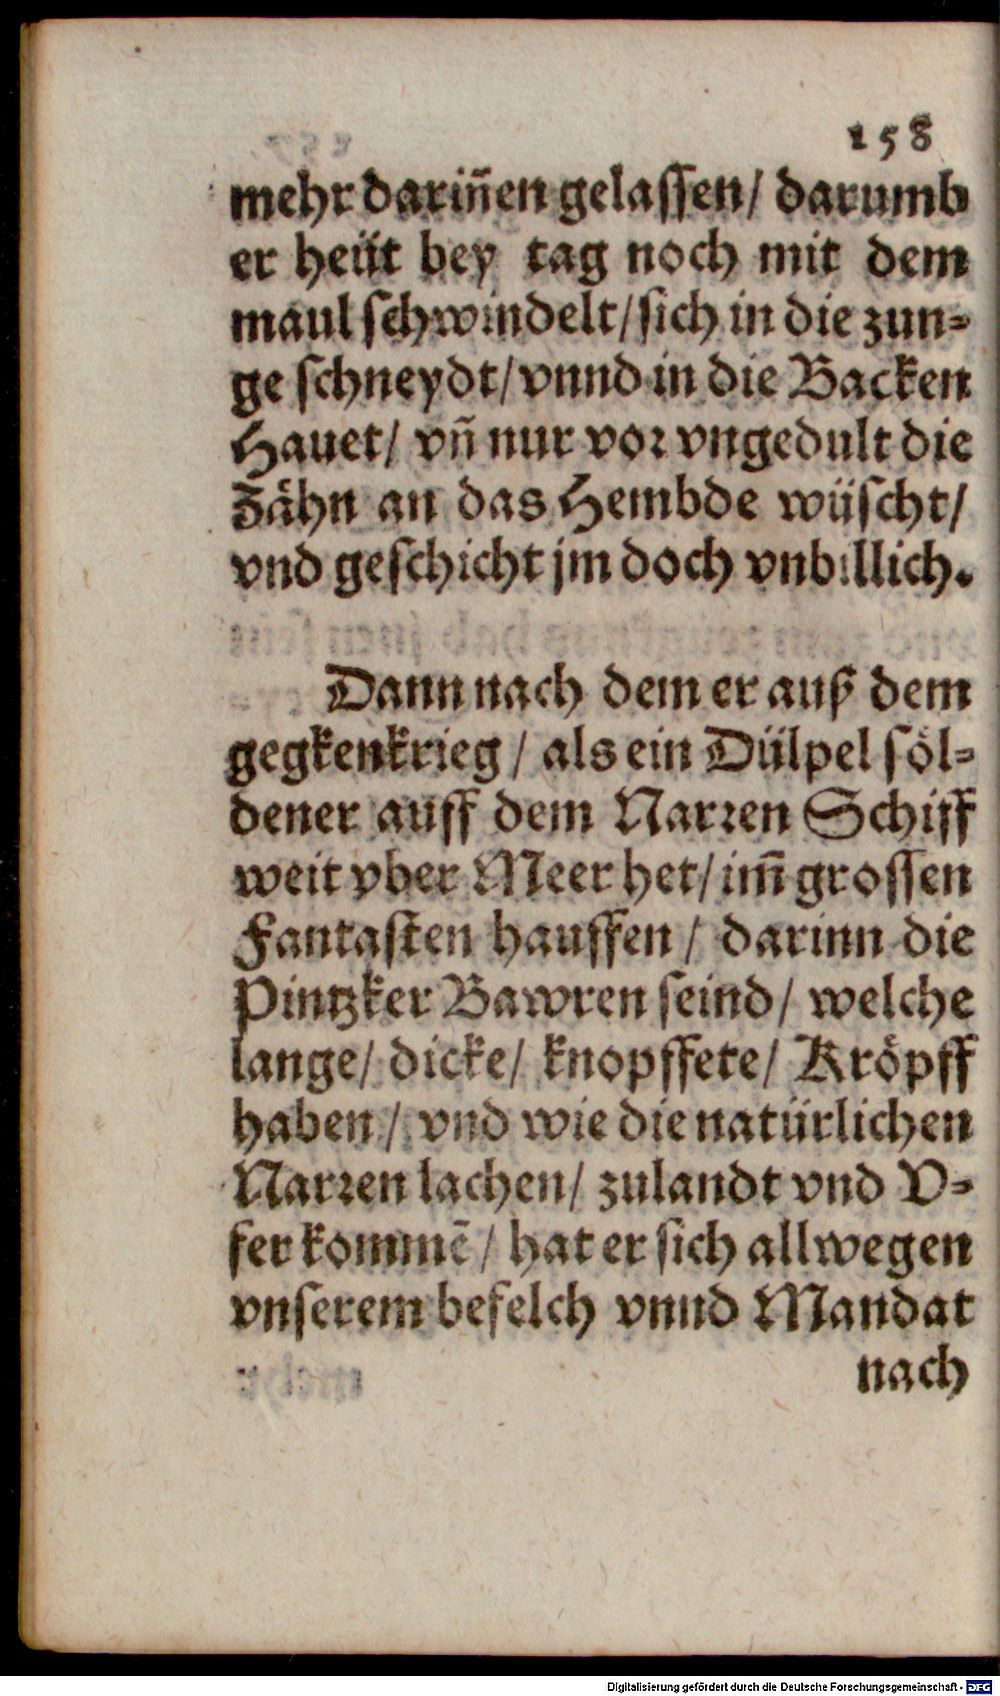 158
mehr dariñen gelassen/ darumb
er heüt bey tag noch mit dem
maul schwindelt/ sich in die zun-
ge schneydt/ vnnd in die Backen
Hauet/ vñ nur vor vngedult die
Zähn an das Hembde wüscht/
vnd geschicht jm doch vnbillich.
Dann nach dem er auß dem
gegkenkrieg/ als ein Dülpel söl-
dener auff dem Narren Schiff
weit vber Meer her/ im̃ grossen
Fantasten hauffen/ darinn die
Pintzker Bawren seind/ welche
lange/ dicke/ knopffete/ Kröpff
haben/ vnd wie die natürlichen
Narren lachen/ zulandt vnd V-
fer kommẽ/ hat er sich allwegen
vnserem befelch vnnd Mandat
nach
Digitalisierung gefördert durch die Deutsche Forschungsgemeinschaft - DFG